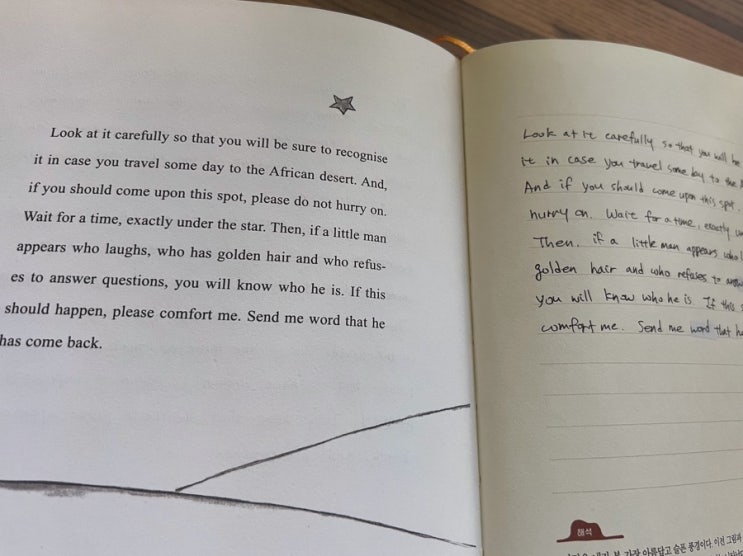 Look at it carefully so that you will be sure to recognise
it in case you travel some day to the African desert. And,
if you should come upon this spot, please do not hurry on.
Wait for a time, exactly under the star. Then, if a little man
appears who laughs, who has golden hair and who refus-
es to answer questions, you will know who he is. If this
should happen, please comfort me. Send me word that he
has come back.
Look at it carefully so that you will be
it in case you travel some day to the
And if you should come upon this spot,
hurry on. Wait for a time, exactly
Then, if a little man appears who
golden hair and who refuses to
you will know who he is. If this
comfort me. Send me word that
해석
가장 아름답고 슬픈 풍경이다. 이전